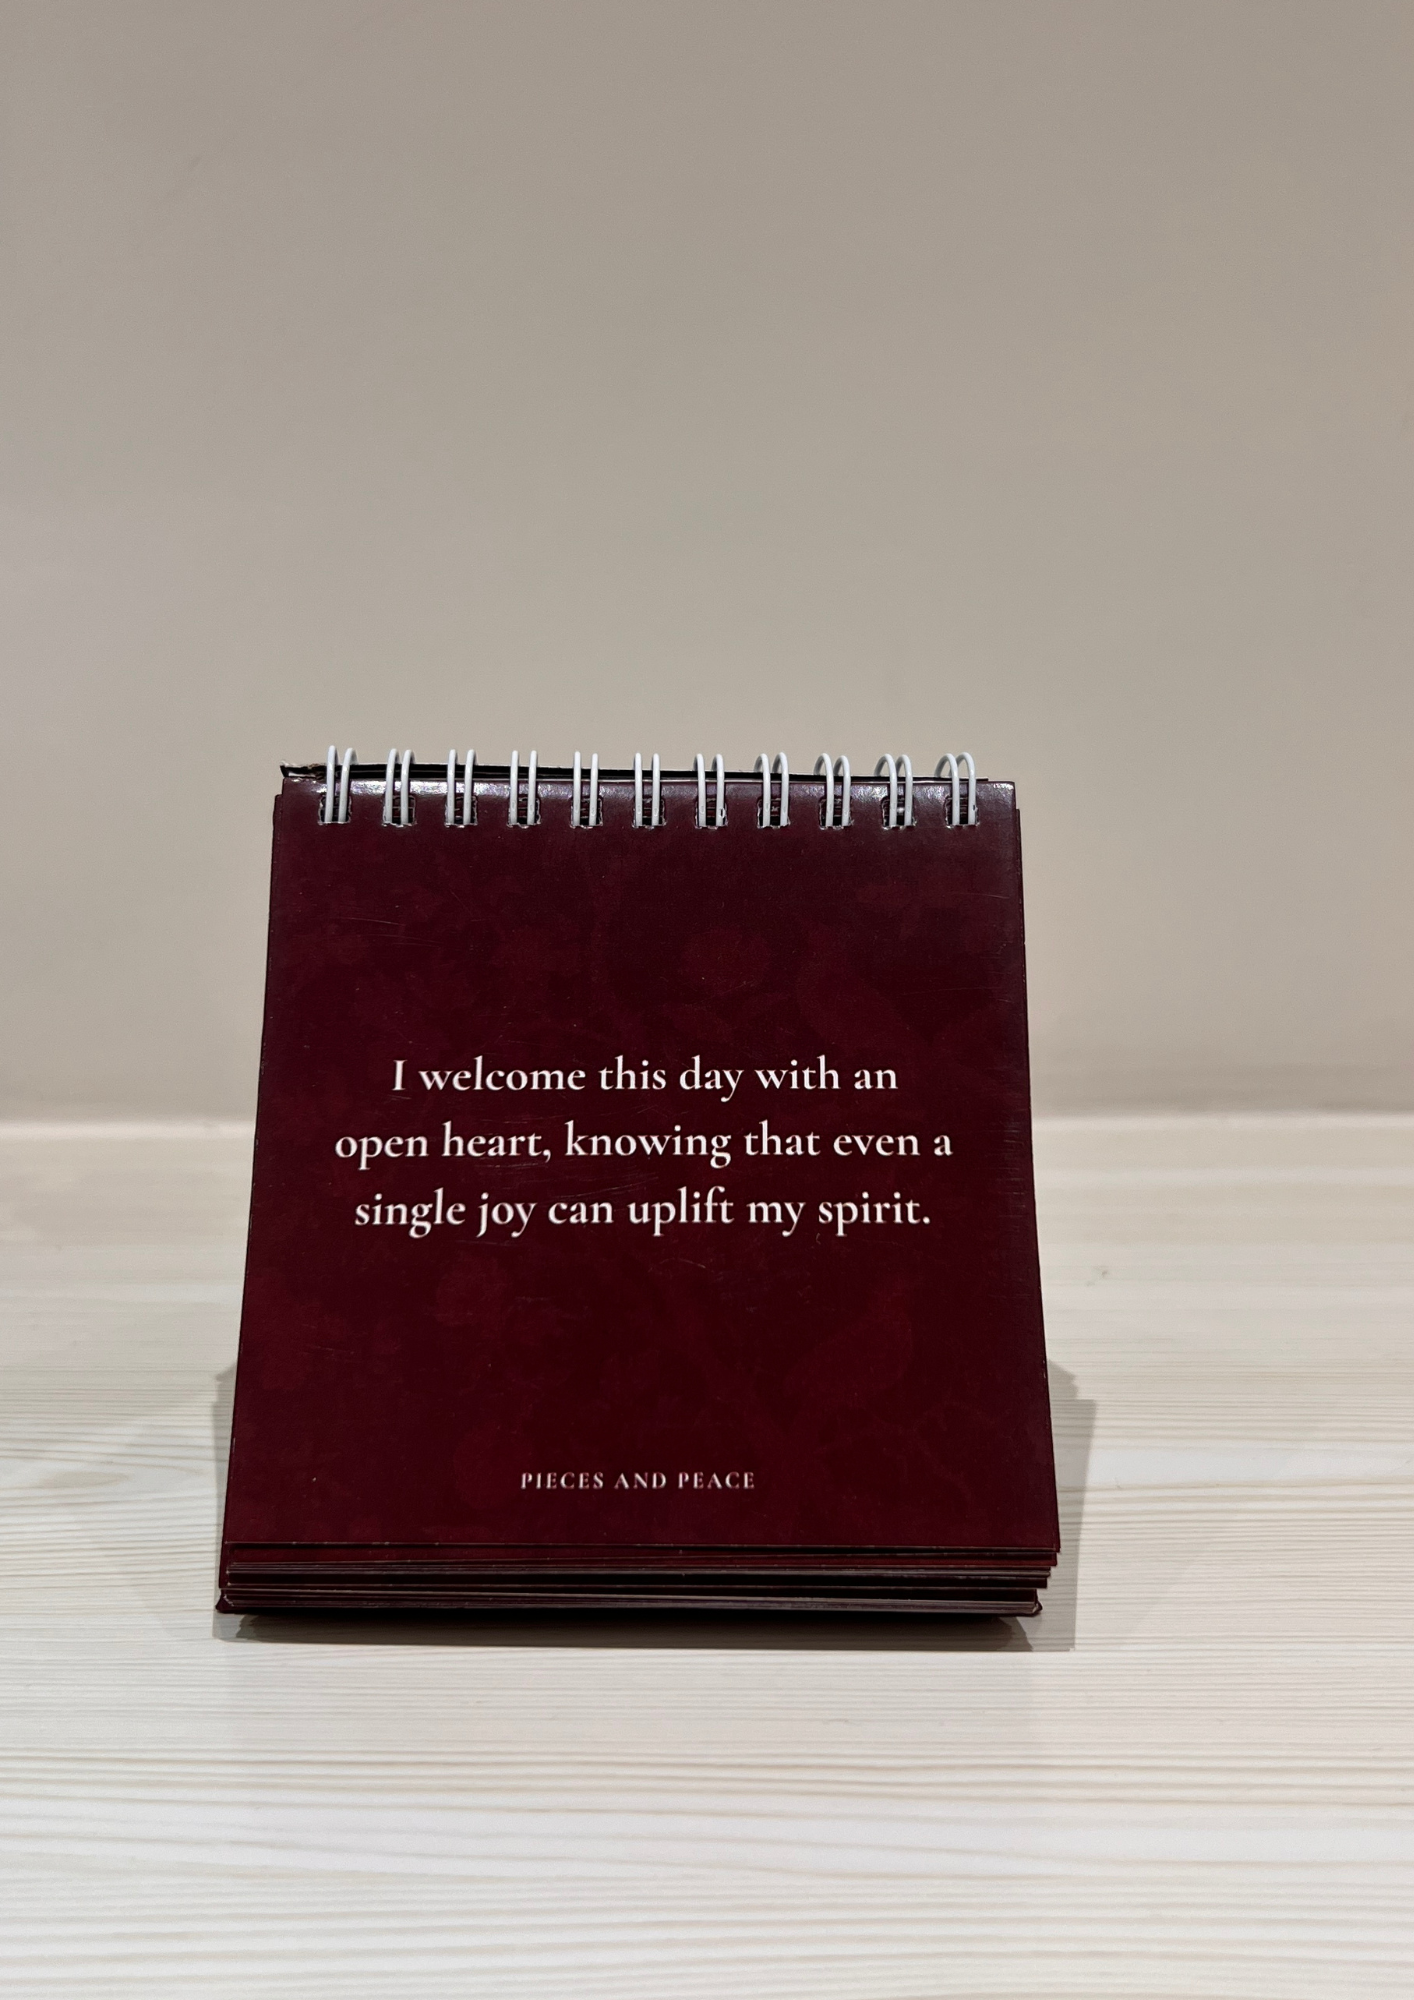 I welcome this day with an
open heart, knowing that even a
single joy can uplift my spirit.
PIECES AND PEACE